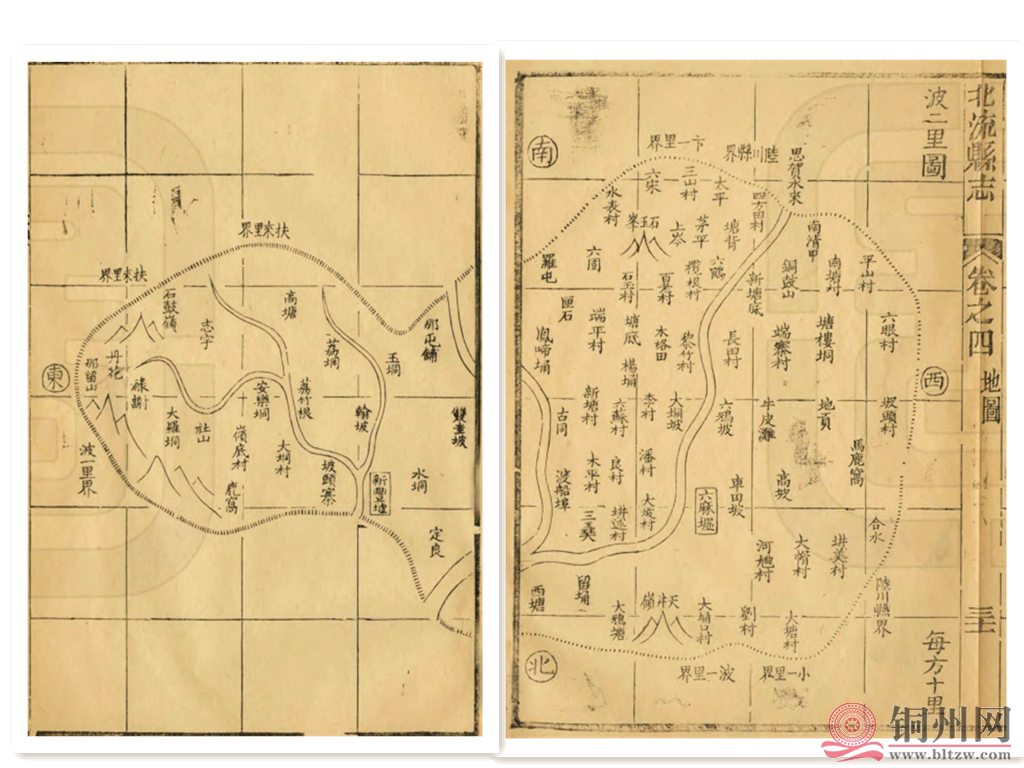 北流縣志
卷之四
地圖
三十
波二里圖
每方十里
南
西
北
東
卞一里界
陸川縣界
思賀水來
六宋
三山村
太平
四方田村
水表村
石玉峯
上岑
茅平
塘背
南清甲
南塘村
平山村
羅屯
六圊
石玉村
夏村
欖根村
六鶴
新塘底
銅鼓山
匣石
端平村
塘底
木格田
黎竹村
長田村
端寨村
塘樓垌
六眼村
鳳啼埇
楊埇
新塘村
六蘇村
李村
大垌坡
六鴉坡
牛皮灘
地頁
坂頭村
古冋
潘村
良村
木平村
馬鹿窩
渡船埠
大坡村
六麻墟
車田坡
高坡
合水
河旭村
大塉村
垪美村
陸川縣界
西塘
留埇
大鴉塘
天井嶺
大埇口村
劉村
大塘村
波一里界
小一里界
扶來里界
扶來里界
石鼓嶺
志宇
高塘
荔垌
那屯舖
玉垌
那留山
丹竻
大羅垌
社山
安樂垌
荔竹根
翰坡
雙圭坡
嶺底村
大垌村
坡頭寨
新豐墟
水垌
鹿窩
定良
波一里界
铜州网
www.bltzw.com